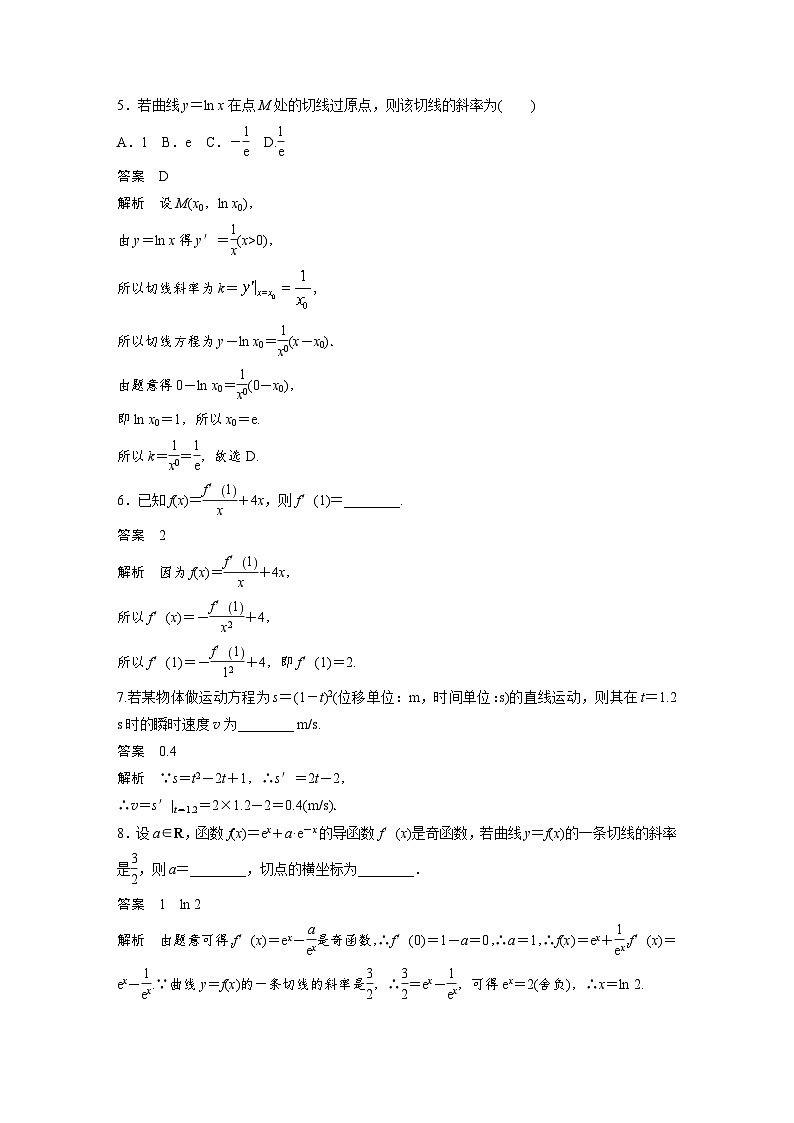 5．若曲线 y＝ln x 在点 M 处的切线过原点，则该切线的斜率为(　　)
A．1　B．e　C．－\frac{1}{e}　D.\frac{1}{e}
答案　D
解析　设 M(x₀，ln x₀)，
由 y＝ln x 得 y′＝\frac{1}{x}(x>0)，
所以切线斜率为 k＝y'|_{x=x₀}=\frac{1}{x₀}，
所以切线方程为 y－ln x₀＝\frac{1}{x0}(x－x₀)．
由题意得 0－ln x₀＝\frac{1}{x0}(0－x₀)，
即 ln x₀＝1，所以 x₀＝e.
所以 k＝\frac{1}{x0}＝\frac{1}{e}，故选 D.
6．已知 f(x)＝\frac{f′(1)}{x}＋4x，则 f′(1)＝________.
答案　2
解析　因为 f(x)＝\frac{f′(1)}{x}＋4x，
所以 f′(x)＝－\frac{f′(1)}{x²}＋4，
所以 f′(1)＝－\frac{f′(1)}{1²}＋4，即 f′(1)＝2.
7.若某物体做运动方程为 s＝(1－t)²(位移单位：m，时间单位：s)的直线运动，则其在 t＝1.2
s 时的瞬时速度 v 为________ m/s.
答案　0.4
解析　∵s＝t²－2t＋1，∴s′＝2t－2，
∴v＝s′|_{t＝1.2}＝2×1.2－2＝0.4(m/s)．
8．设 a∈R，函数 f(x)＝eˣ＋a·e⁻ˣ 的导函数 f′(x)是奇函数，若曲线 y＝f(x)的一条切线的斜率
是\frac{3}{2}，则 a＝________，切点的横坐标为________．
答案　1　ln 2
解析　由题意可得,f′(x)＝eˣ－\frac{a}{eˣ}是奇函数,∴f′(0)＝1－a＝0,∴a＝1,∴f(x)＝eˣ＋\frac{1}{eˣ},f′(x)＝
eˣ－\frac{1}{eˣ}.∵曲线 y＝f(x)的一条切线的斜率是\frac{3}{2}，∴\frac{3}{2}＝eˣ－\frac{1}{eˣ}，可得 eˣ＝2(舍负)，∴x＝ln 2.